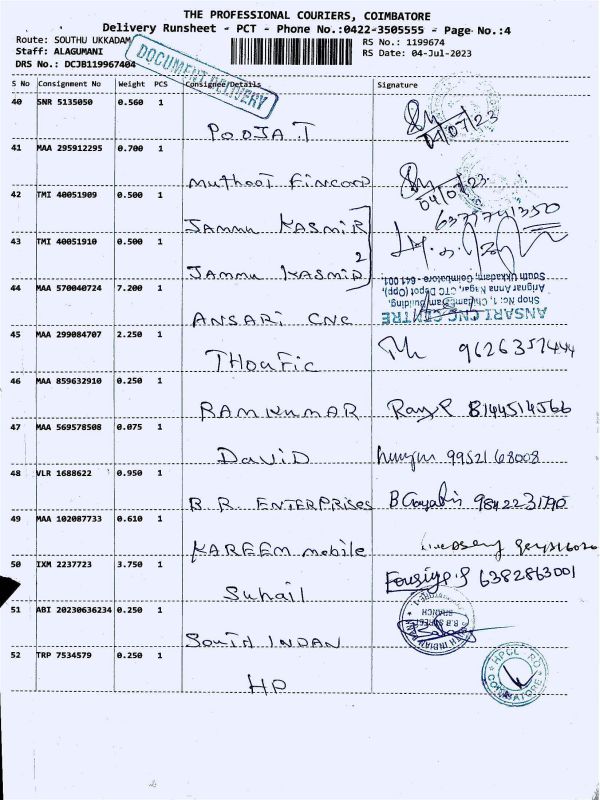 THE PROFESSIONAL COURIERS, COIMBATORE
Delivery Runsheet - PCT - Phone No.:0422-3505555 - Page No.:4
Route: SOUTHU UKKADAM
RS No.: 1199674
Staff: ALAGUMANI
RS Date: 04-Jul-2023
DRS No.: DCJB119967404
DOCUMENT DELIVERY
S No Consignment No Weight PCS Consignee/Details Signature
40 SNR 5135050 0.560 1
POOJA.T 04/07/23
41 MAA 295912295 0.700 1
Muthoot Fincorp 04/07/23.
42 TMI 40051909 0.500 1
JAMMU KASMIR
43 TMI 40051910 0.500 1
JAMMU KASMIR 2
44 MAA 570040724 7.200 1
ANSARI CNC
ANSARI CNC CENTRE
Shop No: 1, Chettam Building,
Arignar Anna Nagar, CTC Depot (Opp),
South Ukkadam, Coimbatore - 641 001.
45 MAA 299084707 2.250 1
THOUFIC 9626357444
46 MAA 859632910 0.250 1
RAMKUMAR 8144514566
47 MAA 569578508 0.075 1
DAVID 9952168008
48 VLR 1688622 0.950 1
B.R ENTERPRISES B Gayatris 9842231790
49 MAA 102087733 0.610 1
KAREEM mobile
50 IXM 2237723 3.750 1
Suhail 6382863001
51 ABI 20230636234 0.250 1
SOUTH INDAN
52 TRP 7534579 0.250 1
HP
HPCL-RO
COIMBATORE